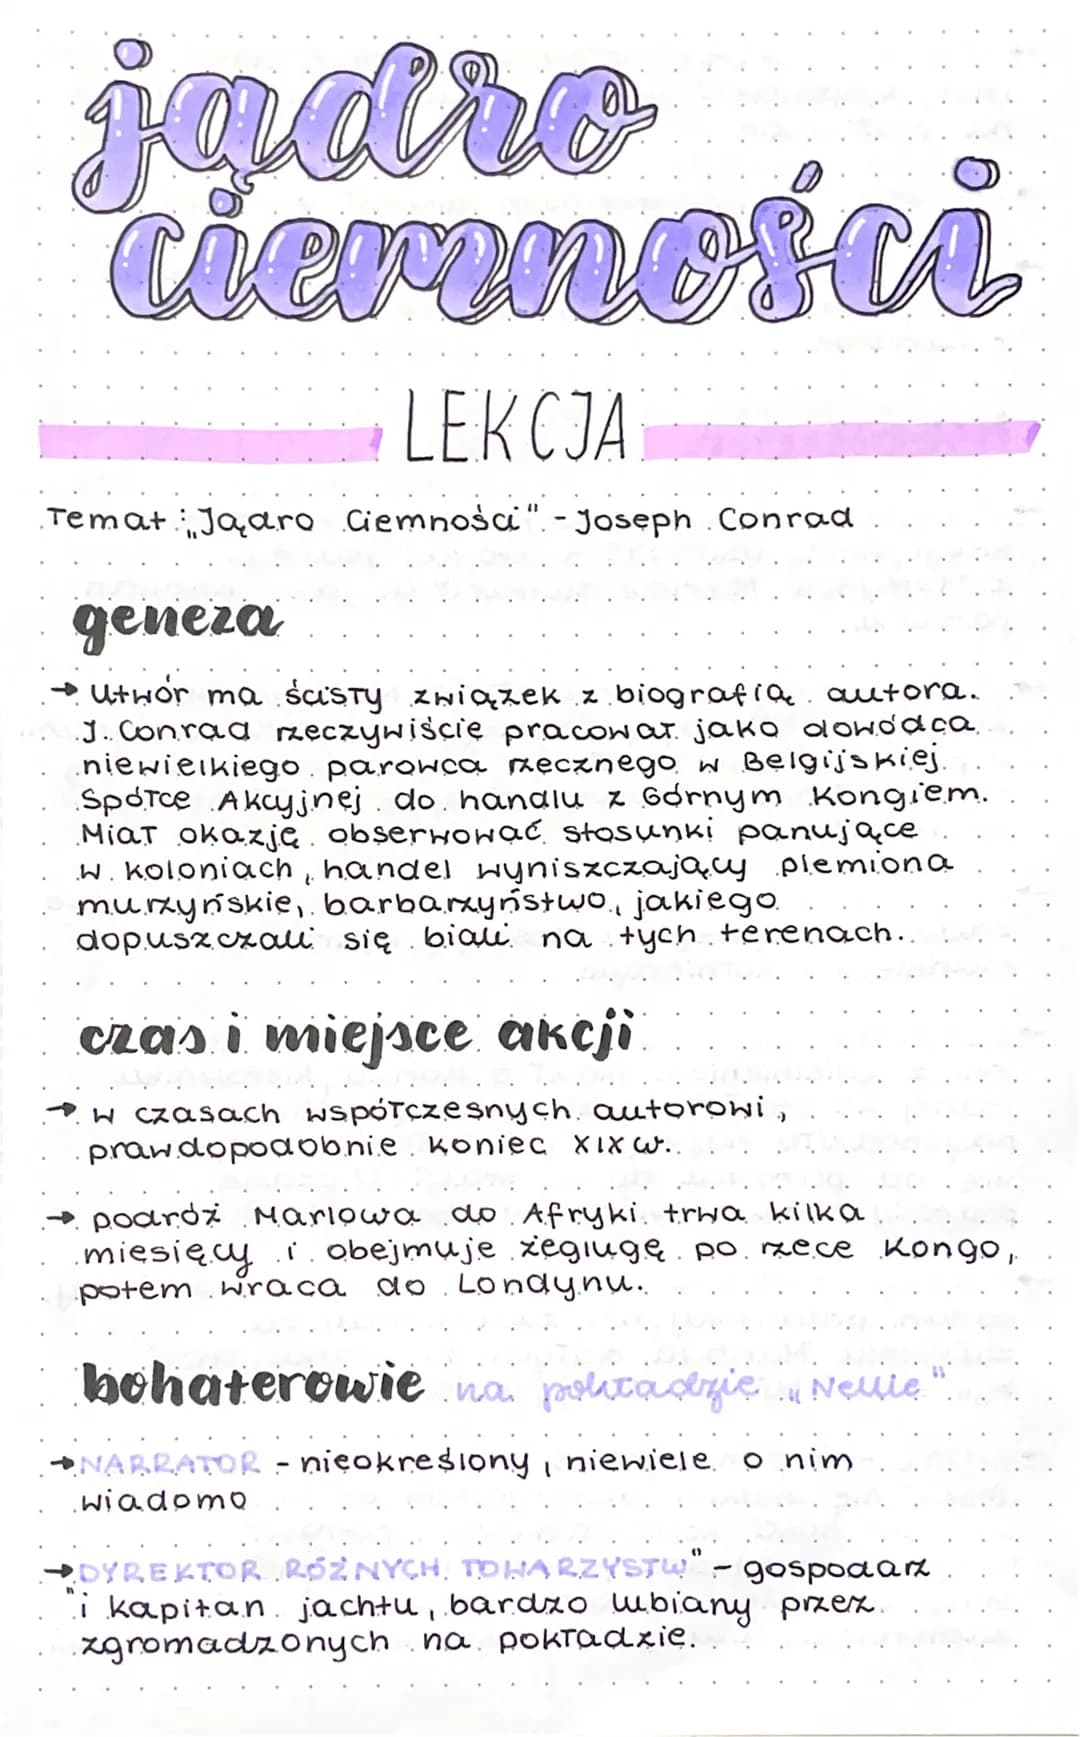 jądro
ciemności
LEKCJA
Temat: „Jądro Ciemności" - Joseph Conrad
geneza
→ Utwór ma ścisły związek z biografią autora.
J. Conrad rzeczywiście pracował jako dowódca
niewielkiego parowca rzecznego w Belgijskiej
Spółce Akcyjnej do handlu z Górnym Kongiem.
Miał okazję obserwować stosunki panujące
w koloniach, handel wyniszczający plemiona
murzyńskie, barbarzyństwo, jakiego
dopuszczali się biali na tych terenach.
czas i miejsce akcji
→ w czasach współczesnych autorowi,
prawdopodobnie koniec XIX w.
→ podróż Marlowa do Afryki trwa kilka
miesięcy i obejmuje żeglugę po rzece Kongo,
potem wraca do Londynu.
bohaterowie na pokładzie „Nellie"
→ NARRATOR - nieokreślony, niewiele o nim
wiadomo
→ „DYREKTOR RÓŻNYCH TOWARZYSTW" - gospodarz
i kapitan jachtu, bardzo lubiany przez
zgromadzonych na pokładzie.